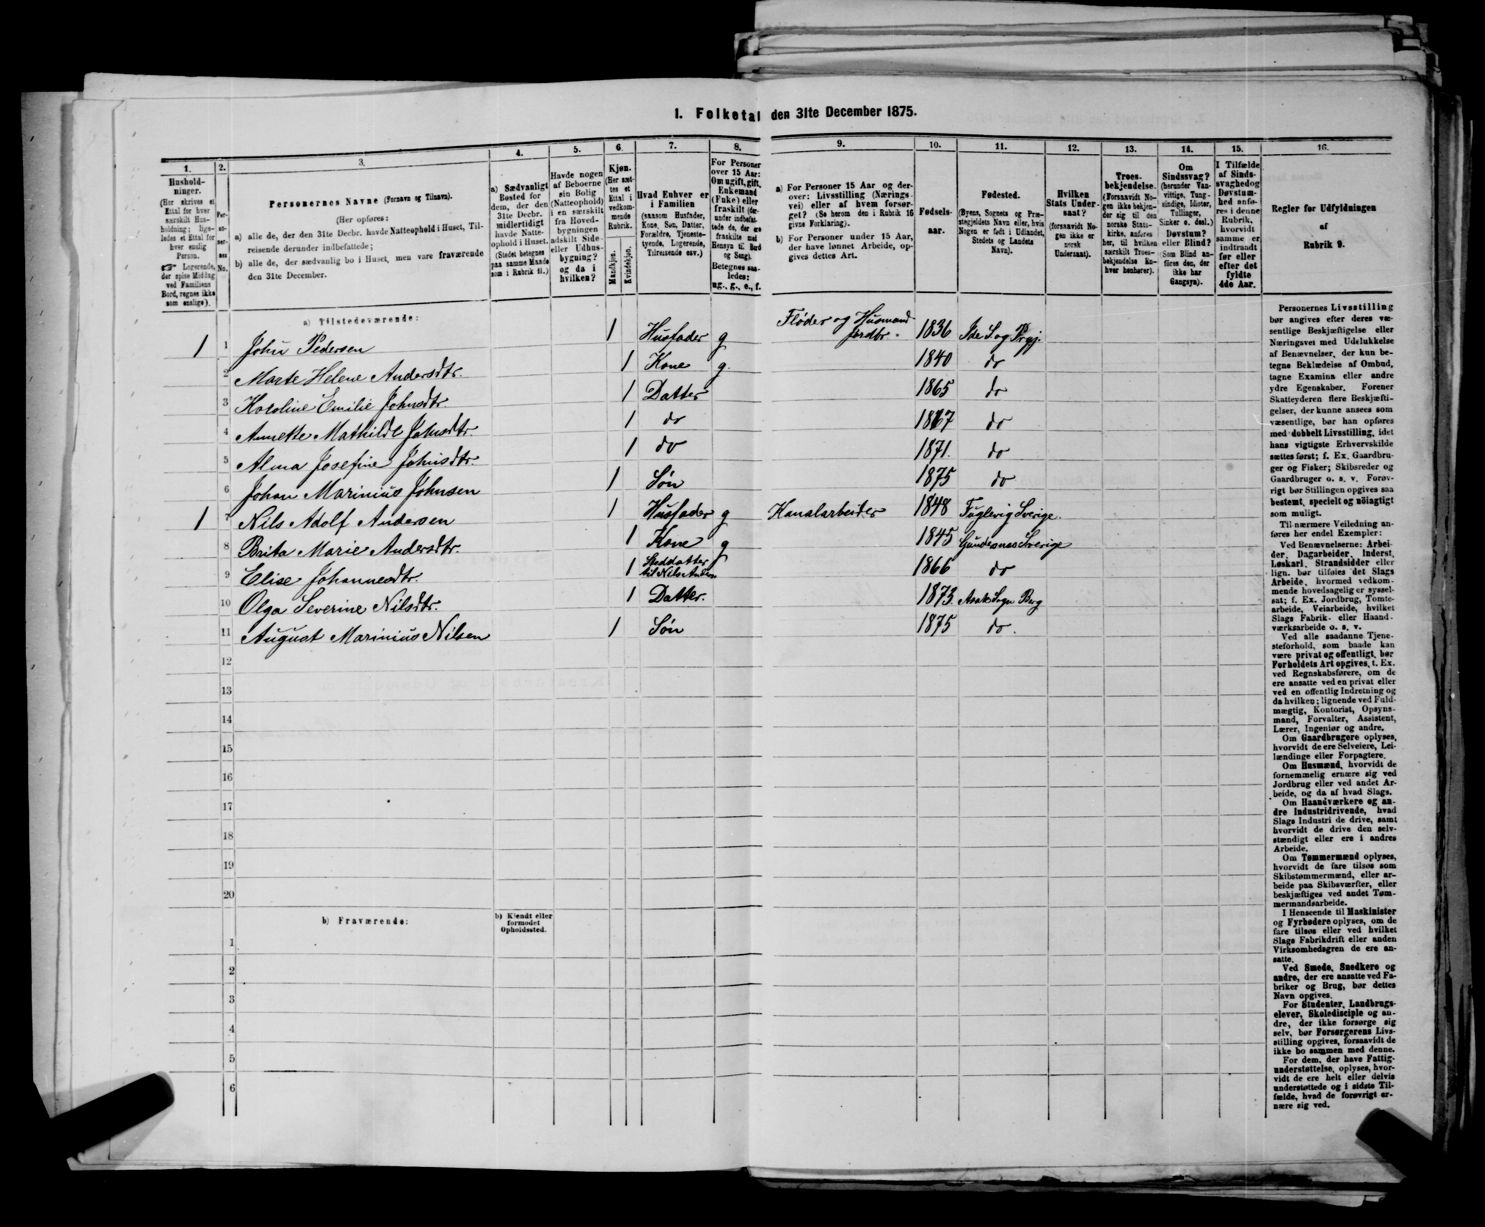 1. Folketal den 31te December 1875.
1.
Husholdninger.
(Her skrives et Ettal for hver særskilt Husholdning; ligeledes et Ettal for hver enslig Person.
☞ Logerende, der spise Middag ved Familiens Bord, regnes ikke som enslige).
2.
Personernes No.
3.
Personernes Navne (Fornavn og Tilnavn).
(Her opføres:
a) alle de, der den 31te Decbr. havde Natteophold i Huset, Tilreisende derunder indbefattede;
b) alle de, der sædvanlig bo i Huset, men vare fraværende den 31te December.
4.
a) Sædvanligt Bosted for dem, der den 31te Decbr. midlertidigt havde Natteophold i Huset.
(Stedet betegnes paa samme Maade som i Rubrik 11.)
5.
Havde nogen af Beboerne sin Bolig (Natteophold) i en særskilt fra Hovedbygningen adskilt Side- eller Udhusbygning? og da i hvilken?
6.
Kjøn.
(Her sættes et Ettal i vedkommende Rubrik.
Mandkjøn. Kvindekjøn.
7.
Hvad Enhver er i Familien
(saasom Husfader, Kone, Søn, Datter, Forældre, Tjenestetyende, Logerende, Tilreisende osv.)
8.
For Personer over 15 Aar: Om ugift, gift, Enkemand (Enke) eller fraskilt (derunder indbefattede de, der ere fraskilte med Hensyn til Bord og Seng).
Betegnes saaledes: ug., g., e., f.
9.
a) For Personer 15 Aar og derover: Livsstilling (Næringsvei) eller af hvem forsørget? (Se herom den i Rubrik 16 givne Forklaring).
b) For Personer under 15 Aar, der have lønnet Arbeide, opgives dettes Art.
10.
Fødselsaar.
11.
Fødested.
(Byens, Sognets og Præstegjeldets Navn eller, hvis Nogen er født i Udlandet, Stedets og Landets Navn).
12.
Hvilken Stats Undersaat?
(forsaavidt Nogen ikke er norsk Undersaat).
13.
Troesbekjendelse.
(Forsaavidt Nogen ikke bekjender sig til den norske Statskirke, anføres her, til hvilken særskilt Troesbekjendelse Enhver henhører).
14.
Om Sindssvag? (herunder Vanvittige, Tungsindige, Idioter, Tullinger, Sinker o. desl.)
Døvstum? eller Blind?
(Som Blind anføres den, der ikke har Gangsyn).
15.
I Tilfælde af Sindssvaghed og Døvstumhed anføres i denne Rubrik, hvorvidt samme er indtraadt før eller efter det fyldte 4de Aar.
16.
Regler for Udfyldningen
af
Rubrik 9.
a) Tilstedeværende:
1 1 John Pedersen 1 Husfader g Fløder og Husmand Jordbr. 1836 Ide S. og Prgj.
2 Marte Helene Andersdtr. 1 Kone g. 1840 do
3 Karoline Emilie Johnsdtr. 1 Datter 1865 do
4 Annette Mathilde Johnsdtr. 1 do 1867 do
5 Alma Josefine Johnsdtr. 1 do 1871. do
6 Johan Marinius Johnsen 1 Søn 1875 do
1 7 Nils Adolf Andersen 1 Husfader g Kanalarbeider 1848 Fuglevig Sverige.
8 Brita Marie Andersdtr. 1 Kone g 1845 Gundesnæs Sverige
9 Elise Johannesdtr. 1 Steddatter til Nils Anders. 1866 do
10 Olga Severine Nilsdtr. 1 Datter. 1873. Asak Sogn Berg
11 August Marinius Nilsen 1 Søn 1875 do.
12
13
14
15
16
17
18
19
20
b) Fraværende:
b) Kjendt eller formodet Opholdssted.
1
2
3
4
5
6
Personernes Livsstilling bør angives efter deres væsentlige Beskjæftigelse eller Næringsvei med Udelukkelse af Benævnelser, der kun betegne Beklædelse af Ombud, tagne Examina eller andre ydre Egenskaber. Forener Skatteyderen flere Beskjæftigelser, der kunne ansees som væsentlige, bør han opføres med dobbelt Livsstilling, idet hans vigtigste Erhvervskilde sættes først; f. Ex. Gaardbruger og Fisker; Skibsreder og Gaardbruger o. s. v. Forøvrigt bør Stillingen opgives saa bestemt, specielt og nöiagtigt som muligt.
Til nærmere Veiledning anføres her endel Exempler:
Ved Benævnelserne: Arbeider, Dagarbeider, Inderst, Løskarl, Strandsidder eller lign. bør tilføies det Slags Arbeide, hvormed vedkommende hovedsagelig er sysselsat; f. Ex. Jordbrug, Tomtearbeide, Veiarbeide, hvilket Slags Fabrik- eller Haandværksarbeide o. s. v.
Ved alle saadanne Tjenesteforhold, som baade kan være privat og offentligt, bør Forholdets Art opgives, t. Ex. ved Regnskabsførere, om de ere ansatte ved en privat eller ved en offentlig Indretning og da hvilken; lignende ved Fuldmægtig, Kontorist, Opsynsmand, Forvalter, Assistent, Lærer, Ingeniør og andre.
Om Gaardbrugere oplyses, hvorvidt de ere Selveiere, Leilændinge eller Forpagtere.
Om Husmænd, hvorvidt de fornemmelig ernære sig ved Jordbrug eller ved andet Arbeide, og da af hvad Slags.
Om Haandværkere og andre Industridrivende, hvad Slags Industri de drive, samt hvorvidt de drive den selvstændigt eller ere i andres Arbeide.
Om Tømmermænd oplyses, hvorvidt de fare tilsøs som Skibstømmermænd, eller arbeide paa Skibsværfter, eller beskjæftiges ved andet Tømmermandsarbeide.
I Henseende til Maskinister og Fyrbødere oplyses, om de fare tilsøs eller ved hvilket Slags Fabrikdrift eller anden Virksomhedsgren de ere ansatte.
Ved Smede, Snedkere og andre, der ere ansatte ved Fabriker og Brug, bør dettes Navn opgives.
For Studenter, Landbrugselever, Skoledisciple og andre, der ikke forsørge sig selv, bør Forsørgerens Livsstilling opgives, forsaavidt de ikke bo sammen med denne.
For dem, der have Fattigunderstøttelse, oplyses, hvorvidt de ere helt eller delvis understøttede og i sidste Tilfælde, hvad de forøvrigt ernære sig ved.